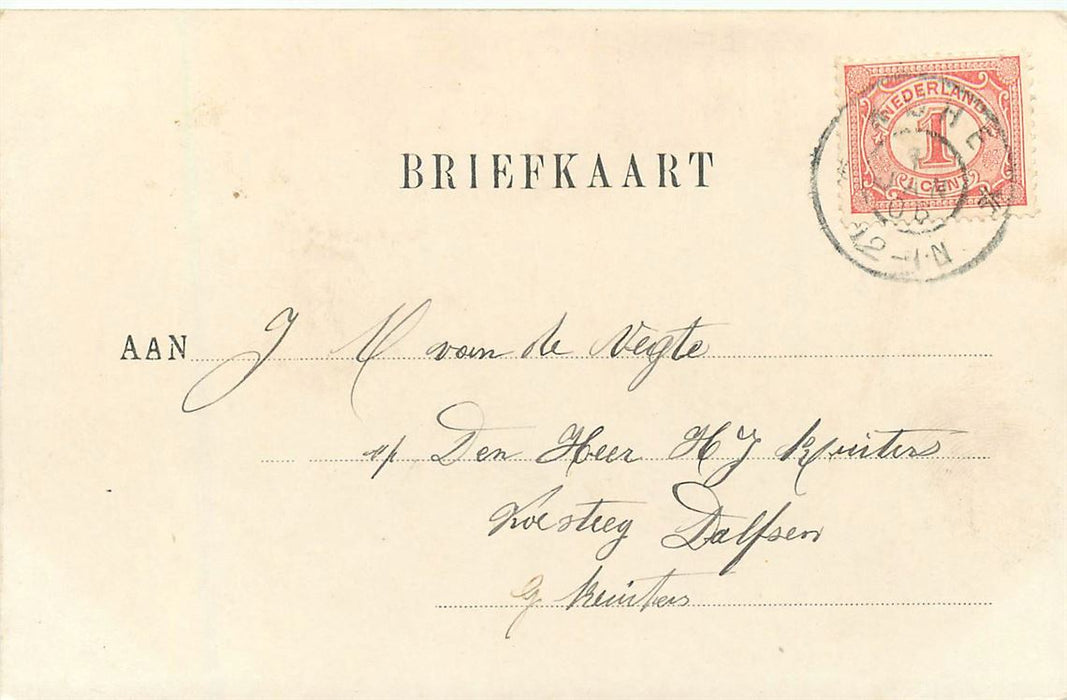 NEDERLAND
1
1 CENT
12-1 N
BRIEFKAART
AAN J M van de Vegte
op Den Heer H J Kuiters
Koesteeg Dalfsen
g Kuiters